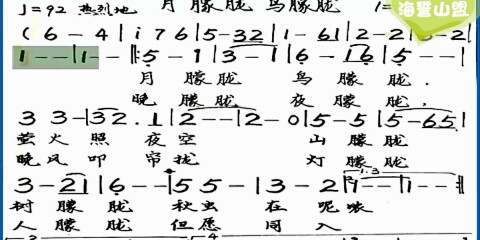 ♩=92 热烈地 月朦胧 鸟朦胧 1=
海誓山盟
( 6 - 4 | i 7 6 | 5 - 32 | 1 - 61 | 2 - 2 | 3 - 2 |
1 - - | 1 - - ‖: 5 - 1 | 3 - 1 | 6 - i6 | 5 - - |
月 朦 胧 鸟 朦 胧 ,
晚 朦 胧 夜 朦 胧 .
3 3 - | 32 . 1 | 2 - - | 2 - 0 | 5 - 5 | 5 - 65 |
萤 火 照 夜 空 山 朦 胧
晚 风 叩 帘 拢 灯 朦 胧
3 - 21 | 6 - - | 5 5 - | 3 - 2 | 1 - - | 1 - - :‖
树 朦 胧 秋 虫 在 呢 哝
人 朦 胧 但 愿 同 入